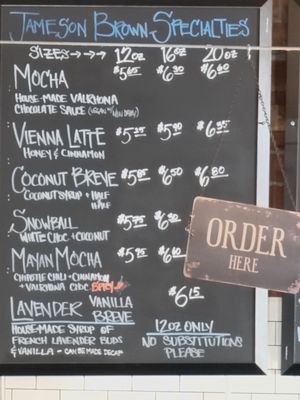 JAMESON BROWN SPECIALTIES
SIZES→→→ 12oz 16oz 20oz
MOCHA $5.65 $6.30 $6.60
HOUSE-MADE VALRHONA
CHOCOLATE SAUCE (VEGAN w/ NON DAIRY)
VIENNA LATTE $5.25 $5.90 $6.35
HONEY & CINNAMON
COCONUT BREVE $5.85 $6.50 $6.80
COCONUT SYRUP + HALF
HALF
SNOWBALL $5.75 $6.30
WHITE CHOC + COCONUT
MAYAN MOCHA $5.75 $6.40
CHIPOTLE CHILI + CINNAMON
+ VALRHONA CHOC SPICY
ORDER
HERE
LAVENDER VANILLA BREVE $6.15
HOUSE-MADE SYRUP OF
FRENCH LAVENDER BUDS
& VANILLA - CAN BE MADE DECAF
12OZ ONLY
NO SUBSTITUTIONS
PLEASE